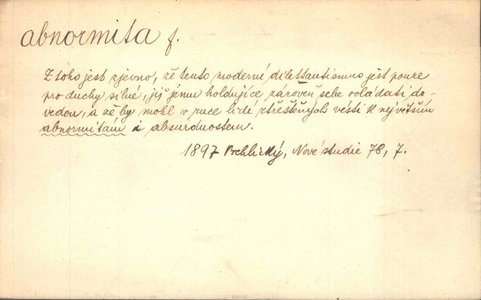 abnormita f.
Z toho jest zjevno, že tento moderné dilettantismus jest pouze
pro duchy silné, již jemu holdujíce zároveň sebe ovládati do-
vedou, a že by mohl v ruce lidí ztřeštěných vésti k největším
abnormitám a absurdnostem.
1897 Vrchlický, Nové studie 78, 7.